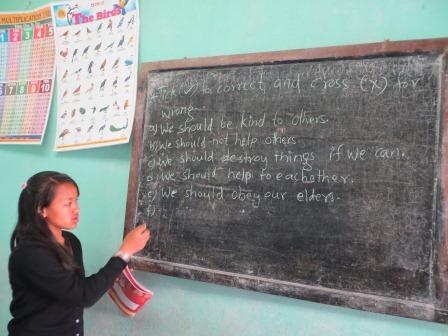 MULTIPLICATION
The Birds
Tick (✓) to correct and cross (x) for
wrong
a) We should be kind to others.
b) We should not help others.
c) We should destroy things if we can.
d) We should help to eachother.
e) We should obey our elders.
f)